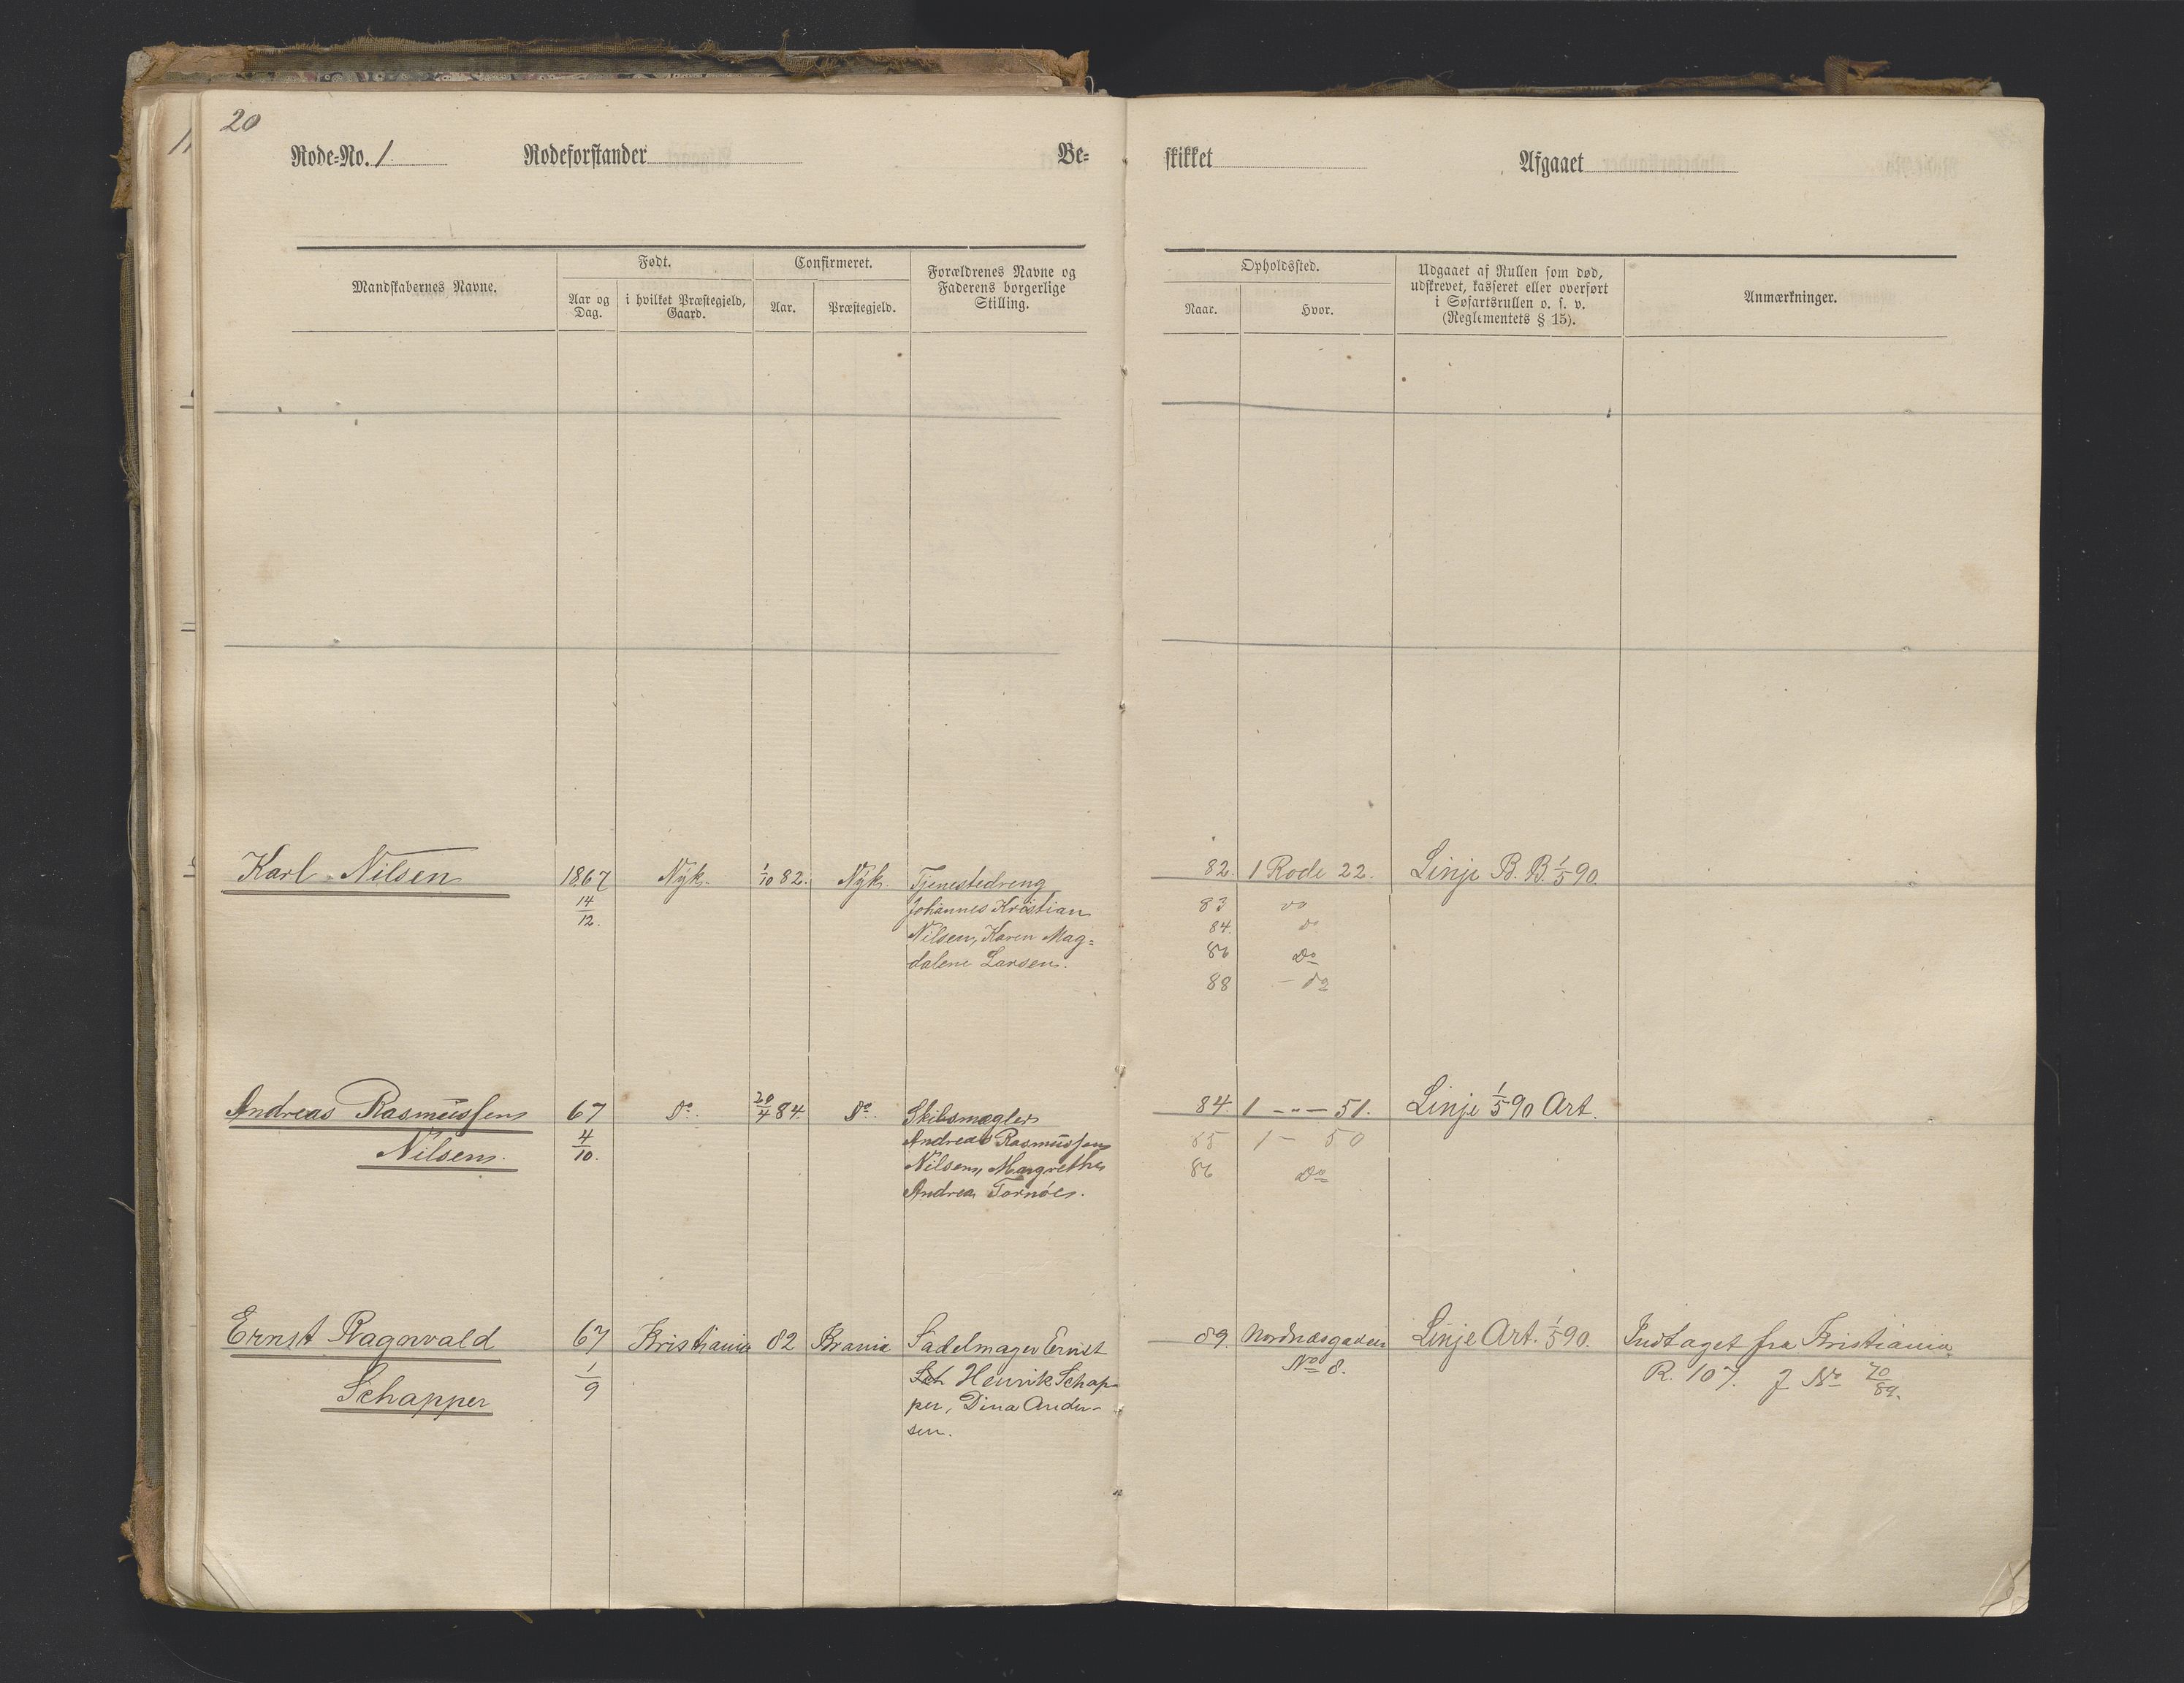 20
Rode-No. 1 Rodeforstander Be-
skikket Afgaaet
Mandskabernes Navne.
Født.
Aar og Dag.
i hvilket Præstegjeld, Gaard.
Confirmeret.
Aar.
Præstegjeld.
Forældrenes Navne og
Faderens borgerlige
Stilling.
Opholdssted.
Naar.
Hvor.
Udgaaet af Rullen som død,
udskrevet, kasseret eller overført
i Søfartsrullen o. s. v.
(Reglementets § 15).
Anmærkninger.
Karl Nilsen 1867 Nyk. 1/10 82. Nyk. Tjenestedreng 82. 1 Rode 22. Linje B. B. 1/5 90.
14/12. Johannes Kristian 83 do
Nilsen, Karen Mag= 84. do
dalene Larsen. 86 Do
88 - do
Andreas Rasmussen 67 do. 20/4 84. do. Skibsmægler 84. 1 -"- 51. Linje 1/5 90 Art.
Nilsen. 4/10. Andreas Rasmussen 85 1 - 50
Nilsen, Margrethe 86 Do
Andrea Tornöe.
Ernst Ragnvald 67 Kristiania 82 Krania Sadelmager Ernst 89. Nordnæsgaden Linje Art. 1/5 90. Indtaget fra Kristiania
Schapper 1/9 Sch Henrik Schap- No 8. R. 107. J No 70/89.
per, Dina Ander-
sen.